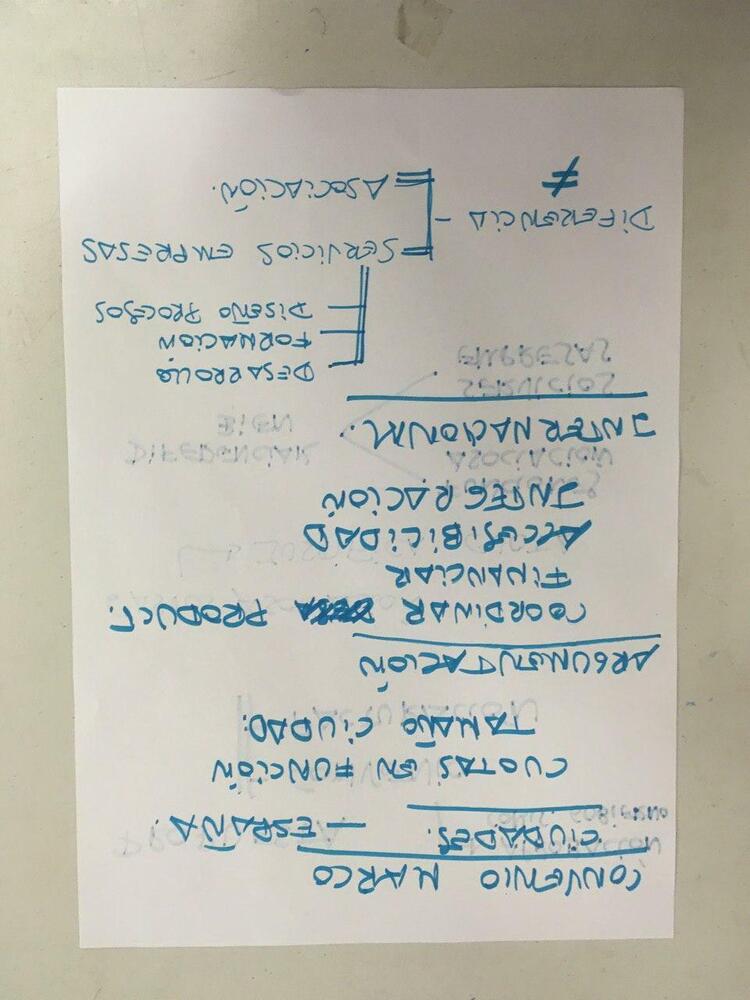 CONVENIO MARCO
CIUDADES. — ESPAÑA.
CUOTAS EN FUNCIÓN
TAMAÑO CIUDAD.
ARGUMENTACIÓN
COORDINAR PRODUCT.
FINANCIAR
ACCESIBILIDAD
INTEGRACIÓN
INTERNACIONAL.
DESARROLLO
FORMACIÓN
DISEÑO PROCESOS
SERVICIOS EMPRESAS
DIFERENCIA -
≠
ASOCIACIÓN.